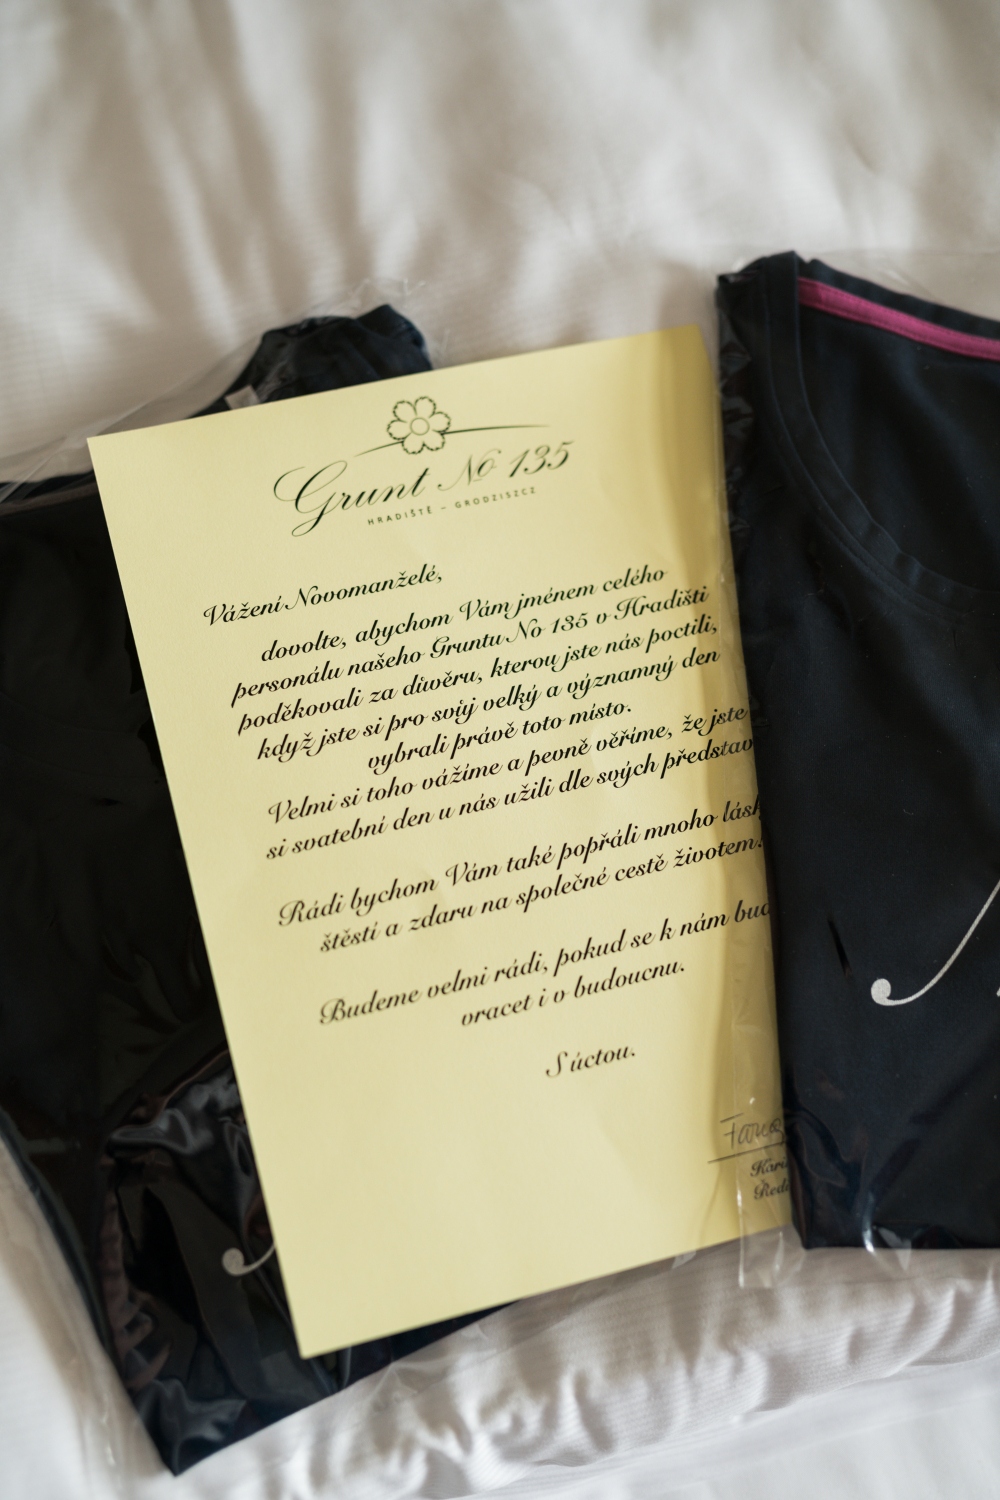 Grunt No 135
HRADIŠTĚ – GRODZISZCZ
Vážení Novomanželé,
dovolte, abychom Vám jménem celého
personálu našeho Gruntu No 135 v Hradišti
poděkovali za důvěru, kterou jste nás poctili,
když jste si pro svůj velký a významný den
vybrali právě toto místo.
Velmi si toho vážíme a pevně věříme, že jste
si svatební den u nás užili dle svých představ
Rádi bychom Vám také popřáli mnoho
štěstí a zdaru na společné cestě životem.
Budeme velmi rádi, pokud se k nám
vracet i v budoucnu.
S úctou.